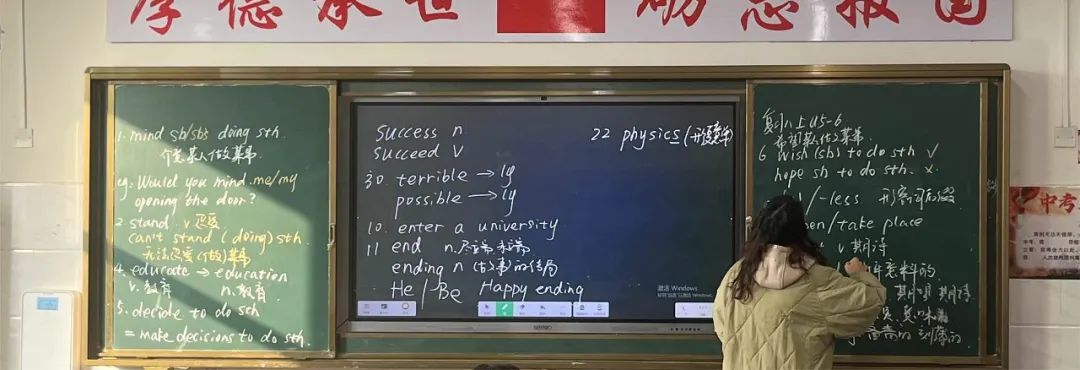 厚德承世 励志报国
1. mind sb/sbs doing sth.
介意某人做某事.
eg. Would you mind me/my
opening the door?
2. stand v 忍受
can't stand (doing) sth
无法忍受(做)某事
4. educate → education
v. 教育 n. 教育
5. decide to do sth
= make decisions to do sth.
success n
succeed v
30. terrible → ly
possible → ly
10. enter a university
11 end n.
ending n (故事)的结局
He / Be Happy ending
22 physics
激活 Windows
复习八上U5-6
希望某人做某事.
6 wish (sb) to do sth √
hope sb to do sth. ×.
/-less 形容词后缀
en/take place
v 期待
意料的
期待
刻薄的
中考